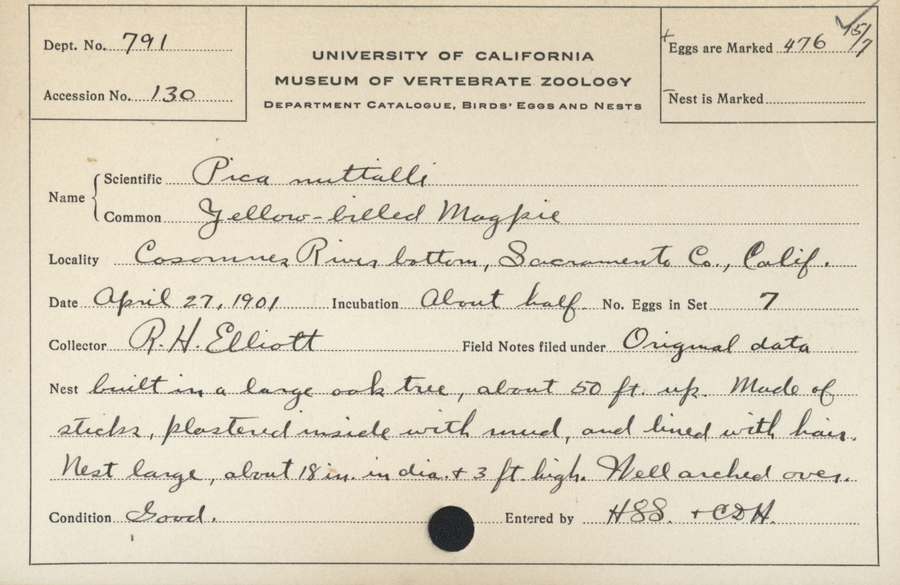 Dept. No. 791
Accession No. 130
UNIVERSITY OF CALIFORNIA
MUSEUM OF VERTEBRATE ZOOLOGY
DEPARTMENT CATALOGUE, BIRDS' EGGS AND NESTS
+Eggs are Marked 476 15/7
-Nest is Marked
Name
Scientific Pica nuttalli
Common Yellow-billed Magpie
Locality Cosomnes River bottom, Sacramento Co., Calif.
Date April 27, 1901 Incubation About half. No. Eggs in Set 7
Collector R. H. Elliott Field Notes filed under Original data
Nest built in a large oak tree, about 50 ft. up. Made of
sticks, plastered inside with mud, and lined with hair.
Nest large, about 18 in. in dia. + 3 ft. high. Well arched over.
Condition Good. Entered by HSS. + CDH.